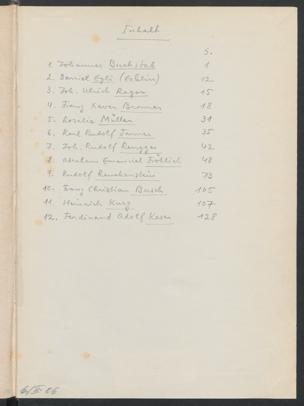 Inhalt
S.
1. Johannes Buchstab 1
2. Daniel Egli (Eglin) 12
3. Joh. Ulrich Ragor 15
4. Franz Xaver Bronner 18
5. Rosalie Müller 31
6. Karl Rudolf Tanner 35
7. Joh. Rudolf Rengger 42
8. Abraham Emanuel Fröhlich 48
9. Rudolf Rauchenstein 73
10. Franz Christian Busch 105
11. Heinrich Kurz 107
12. Ferdinand Adolf Keser 128